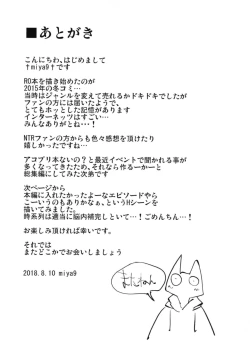 ■あとがき
こんにちわ。はじめまして
†miya9†です
RO本を描き始めたのが
2015年の冬コミ…
当時はジャンルを変えて売れるかドキドキでしたが
ファンの方には届いたようで、
とてもホッとした記憶があります
インターネッツはすごい…
みんなありがとね…!
NTRファンの方からも色々感想を頂けたり
嬉しかったですね…
アコプリ本ないの?と最近イベントで聞かれる事が
多くなってきたため、それなら作るーかーと
総集編にしてみた次第です
次ページから
本編に入れたかったよーなエピソードやら
こーいうのもありかなぁ、というHシーンを
描いてみました。
時系列は適当に脳内補完しといて…!ごめんちん…!
お楽しみ頂ければ幸いです。
それでは
またどこかでお会いしましょう
2018.8.10 miya9